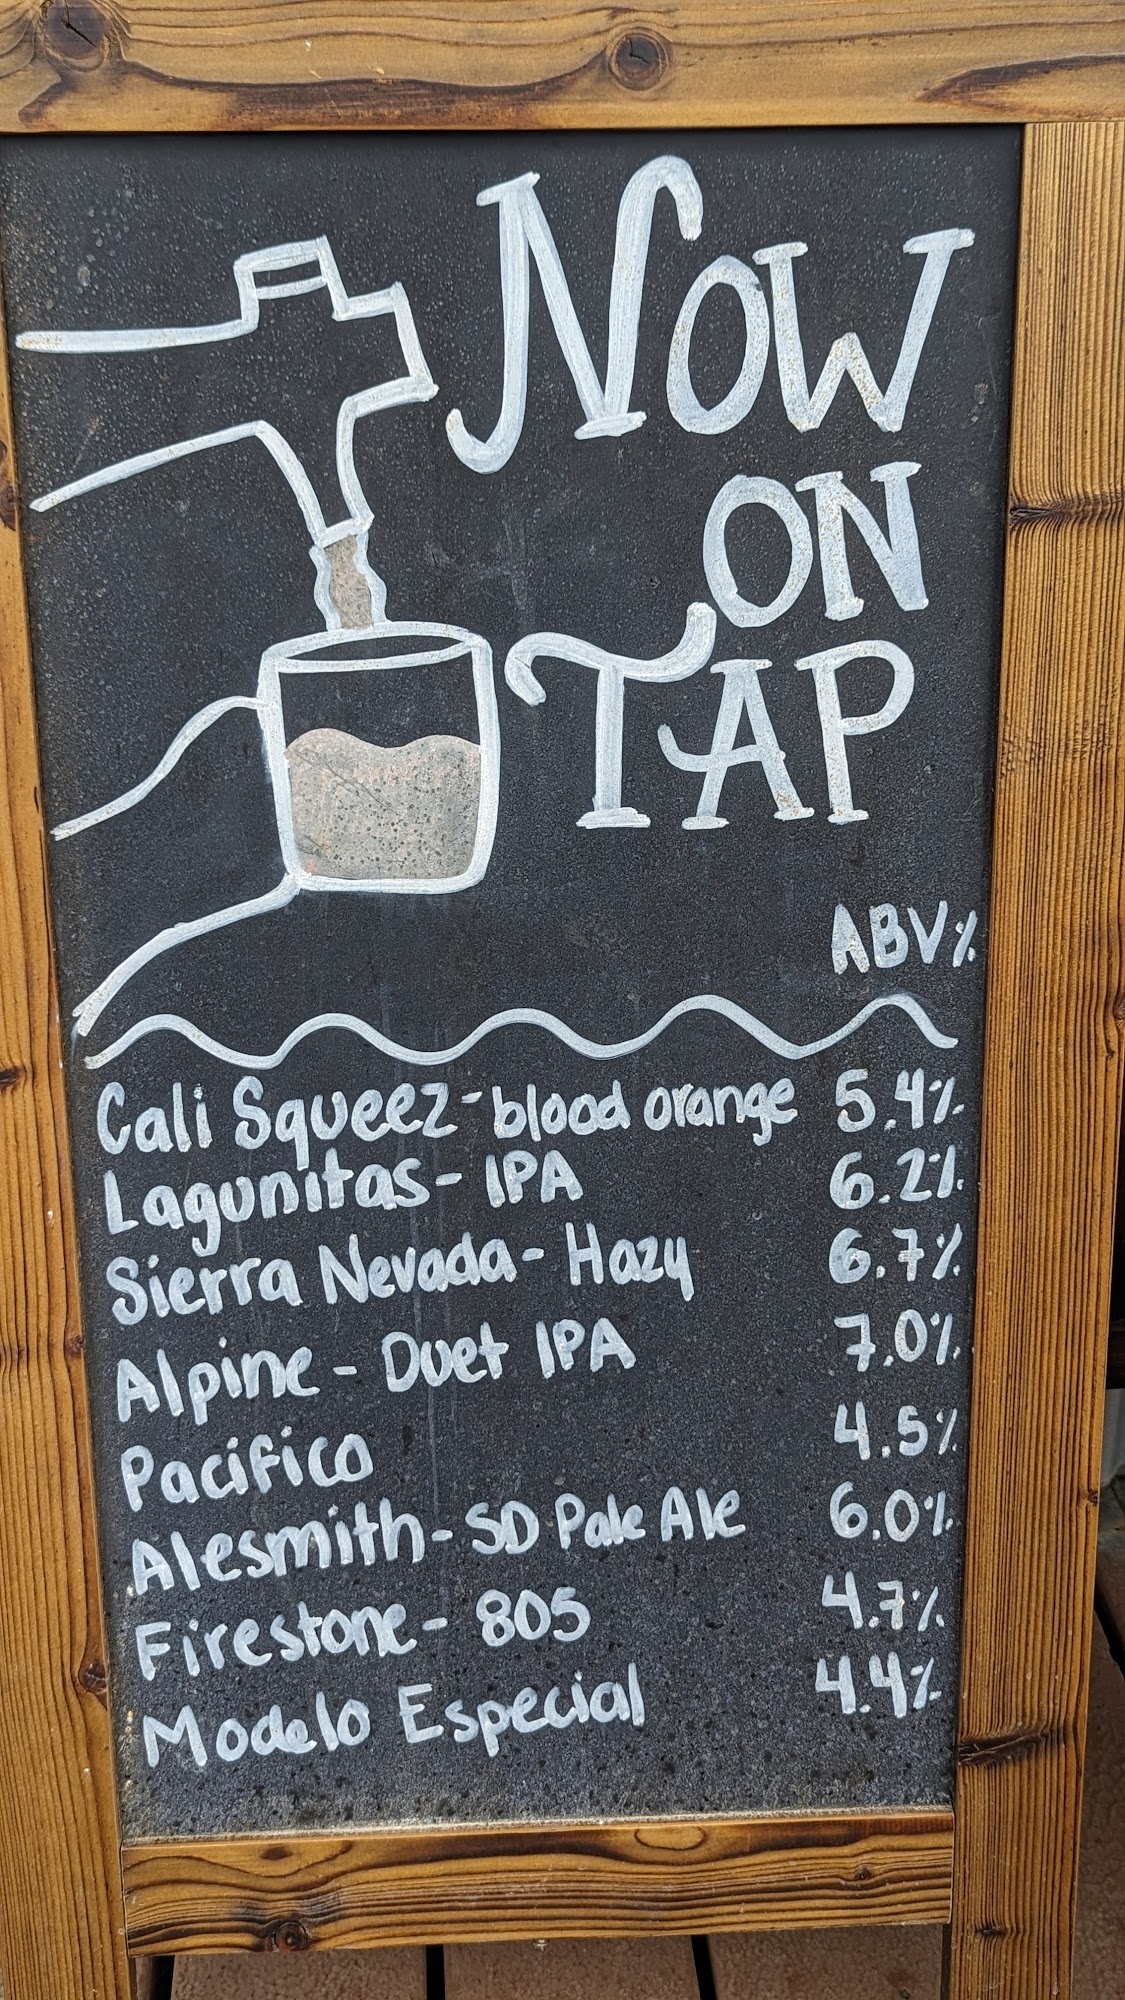 Now
ON
TAP
ABV%
Cali Squeez - blood orange 5.4%
Lagunitas - IPA 6.2%
Sierra Nevada - Hazy 6.7%
Alpine - Duet IPA 7.0%
Pacifico 4.5%
Alesmith - SD Pale Ale 6.0%
Firestone - 805 4.7%
Modelo Especial 4.4%